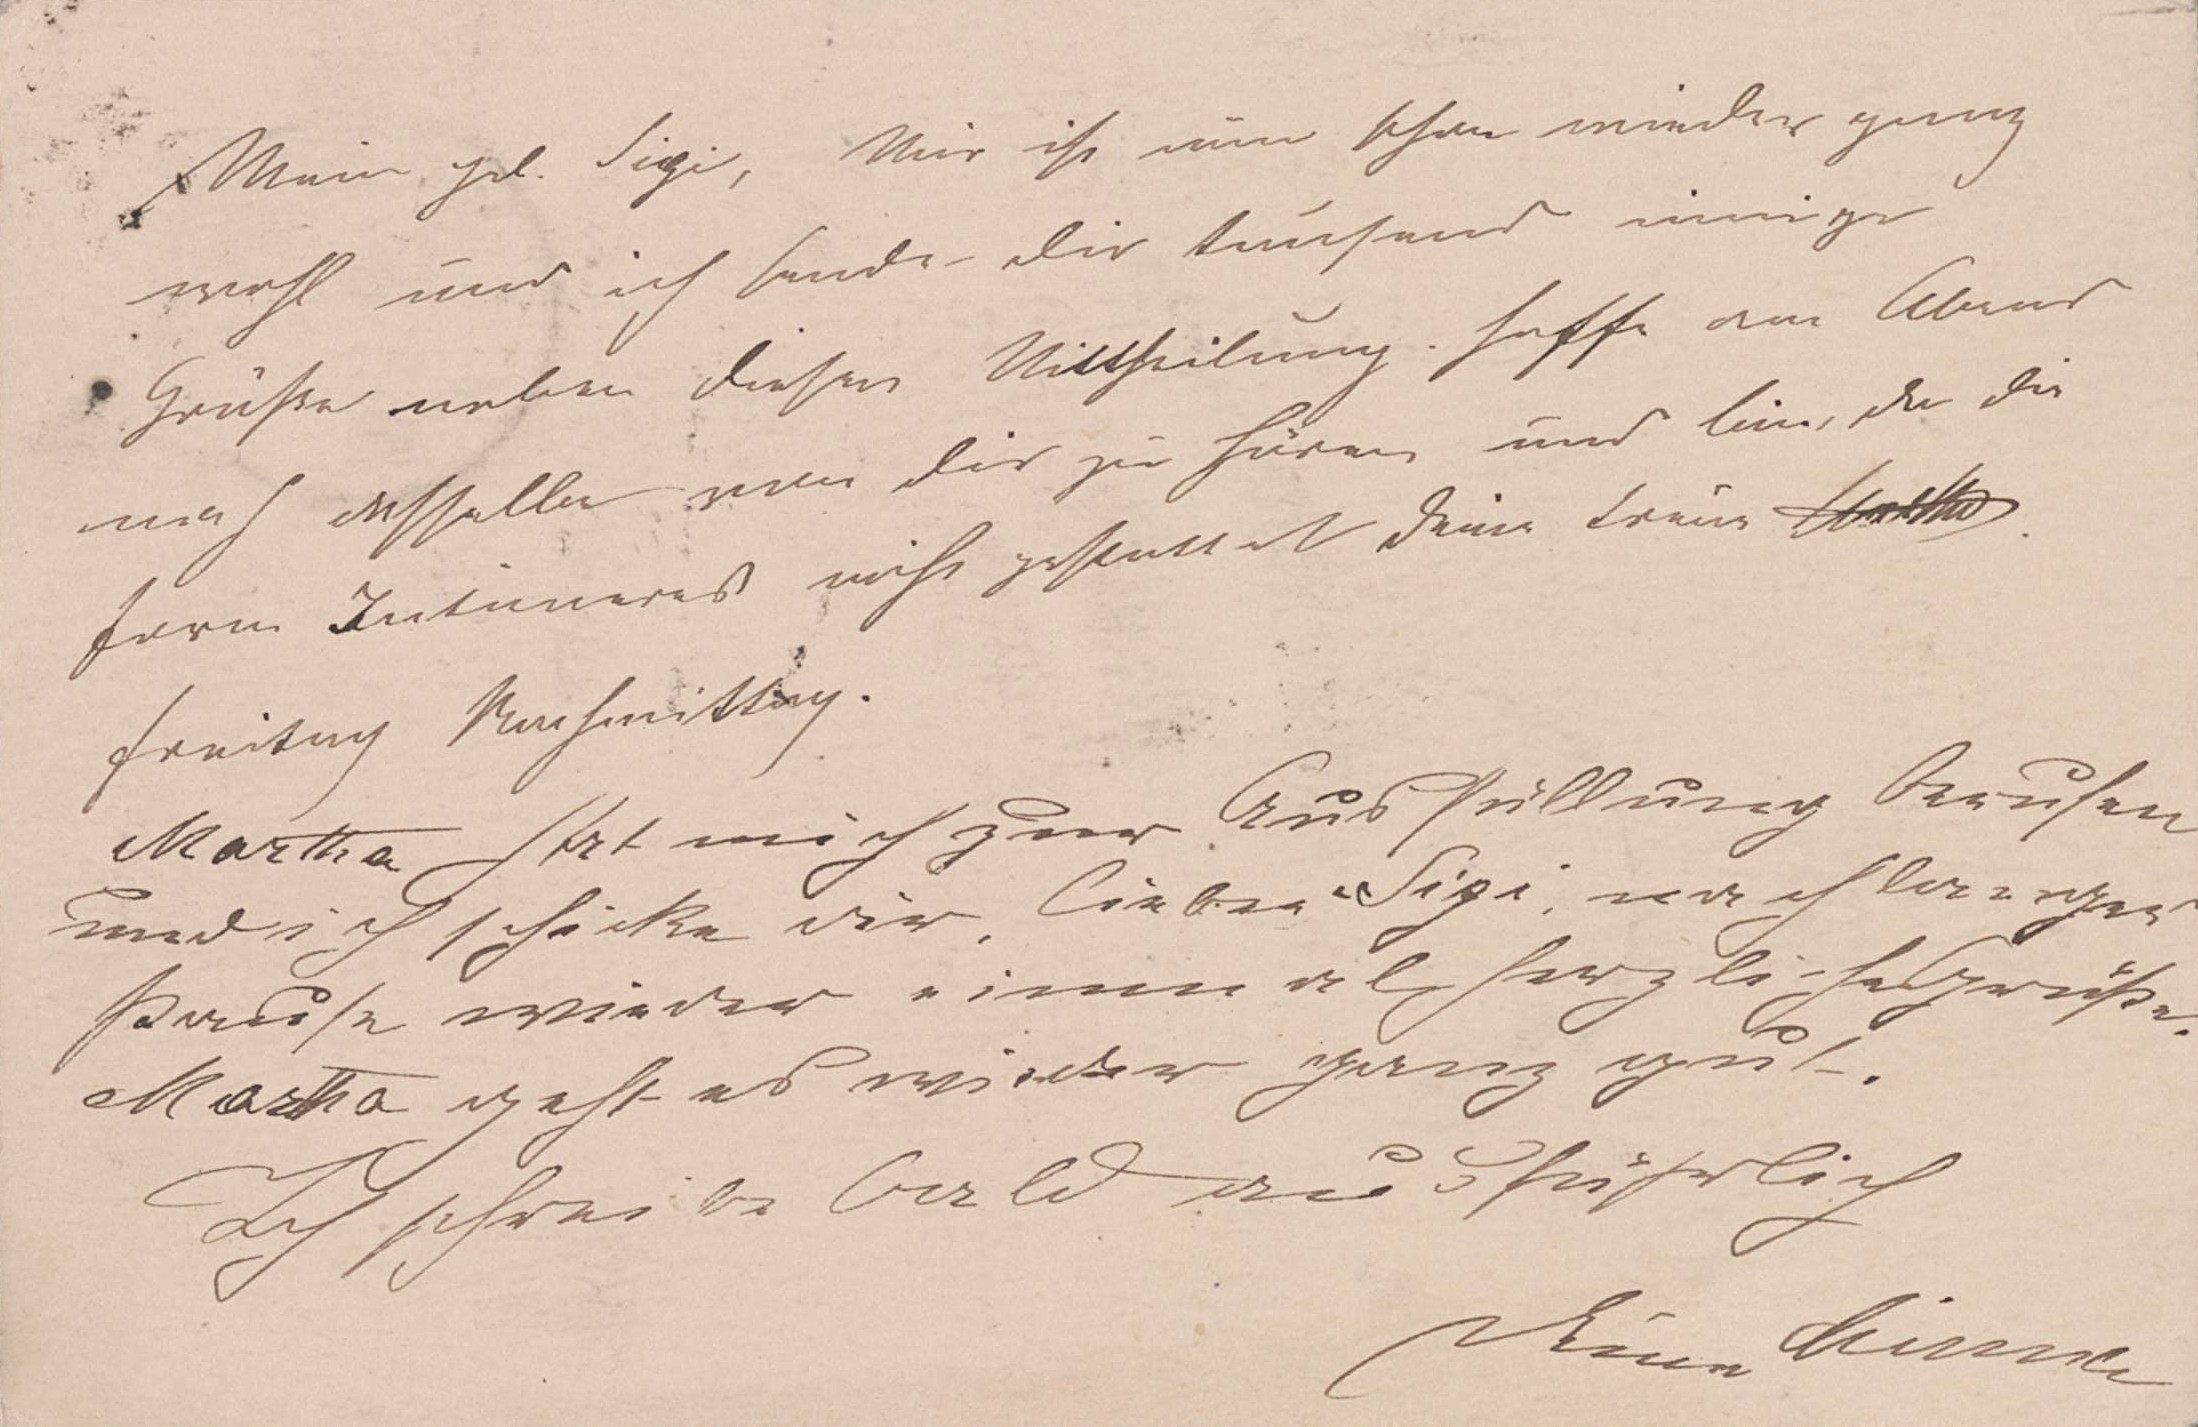 Mein gel. Sigi, Mir ist nun schon wieder ganz
wohl und ich sende dir tausend innige
Grüße neben dieser Mittheilung. Hoffe am Abend
noch von dir zu hören und bin, da die
Form Intimeres nicht gestattet deine treue Martha.
Freitag Nachmittag.
Martha hat mich zur Ausfüllung berufen
und ich schicke dir, lieber Sigi, nach langer
Pause wieder einmal herzliche Grüße.
Martha geht es wieder ganz gut.
Ich schreibe bald ausführlich
Deine Minna